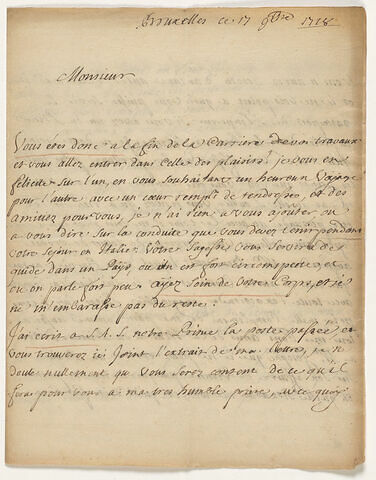 Bruxelles ce 17 9bre 1718
Monsieur
Vous étes donc a la fin de la Carriere de vos travaux
et vous allez entrer dans Celle des plaisirs! je vous en
felicite sur l'un, en vous souhaitant un heureux Voyage
pour l'autre avec un cœur rempli de tendresse, et des
amitiez pour vous, je n'ai rien a vous ajouter ou
a vous dire sur la conduite que vous devez tenir pendant
votre sejour en Italie. Votre sagesse vous servira de
guide dans un Pays ou l'on est fort circonspecte, et
ou on parle fort peu; ayez soin de votre Corps, et je
ne m'embarasse pas du reste.
J'ai ecrit a S. A. S. notre Prince la poste passée et
vous trouverez ici joint l'extrait de ma lettre, je ne
doute nullement que vous serez content de ce qu'il
feras pour vous a ma tres humble priere, avec quoy